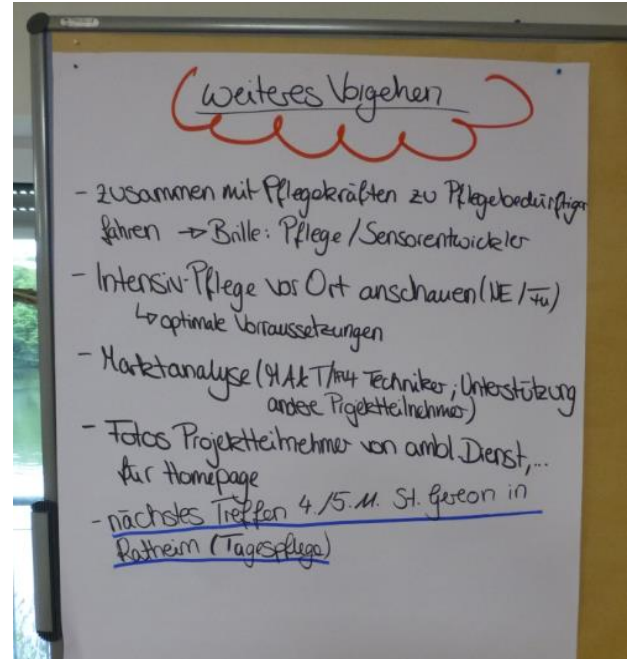 weiteres Vorgehen
- zusammen mit Pflegekräften zu Pflegebedürftigen
fahren → Brille: Pflege/Sensorentwickler
- Intensiv-Pflege vor Ort anschauen (NE/
↳ optimale Vorraussetzungen
- Marktanalyse ( Techniker; Unterstützung
andere Projektteilnehmer)
- Fotos Projektteilnehmer von ambl. Dienst,...
für Homepage
- nächstes Treffen 4./5.11. St. Gereon in
Ratheim (Tagespflege)